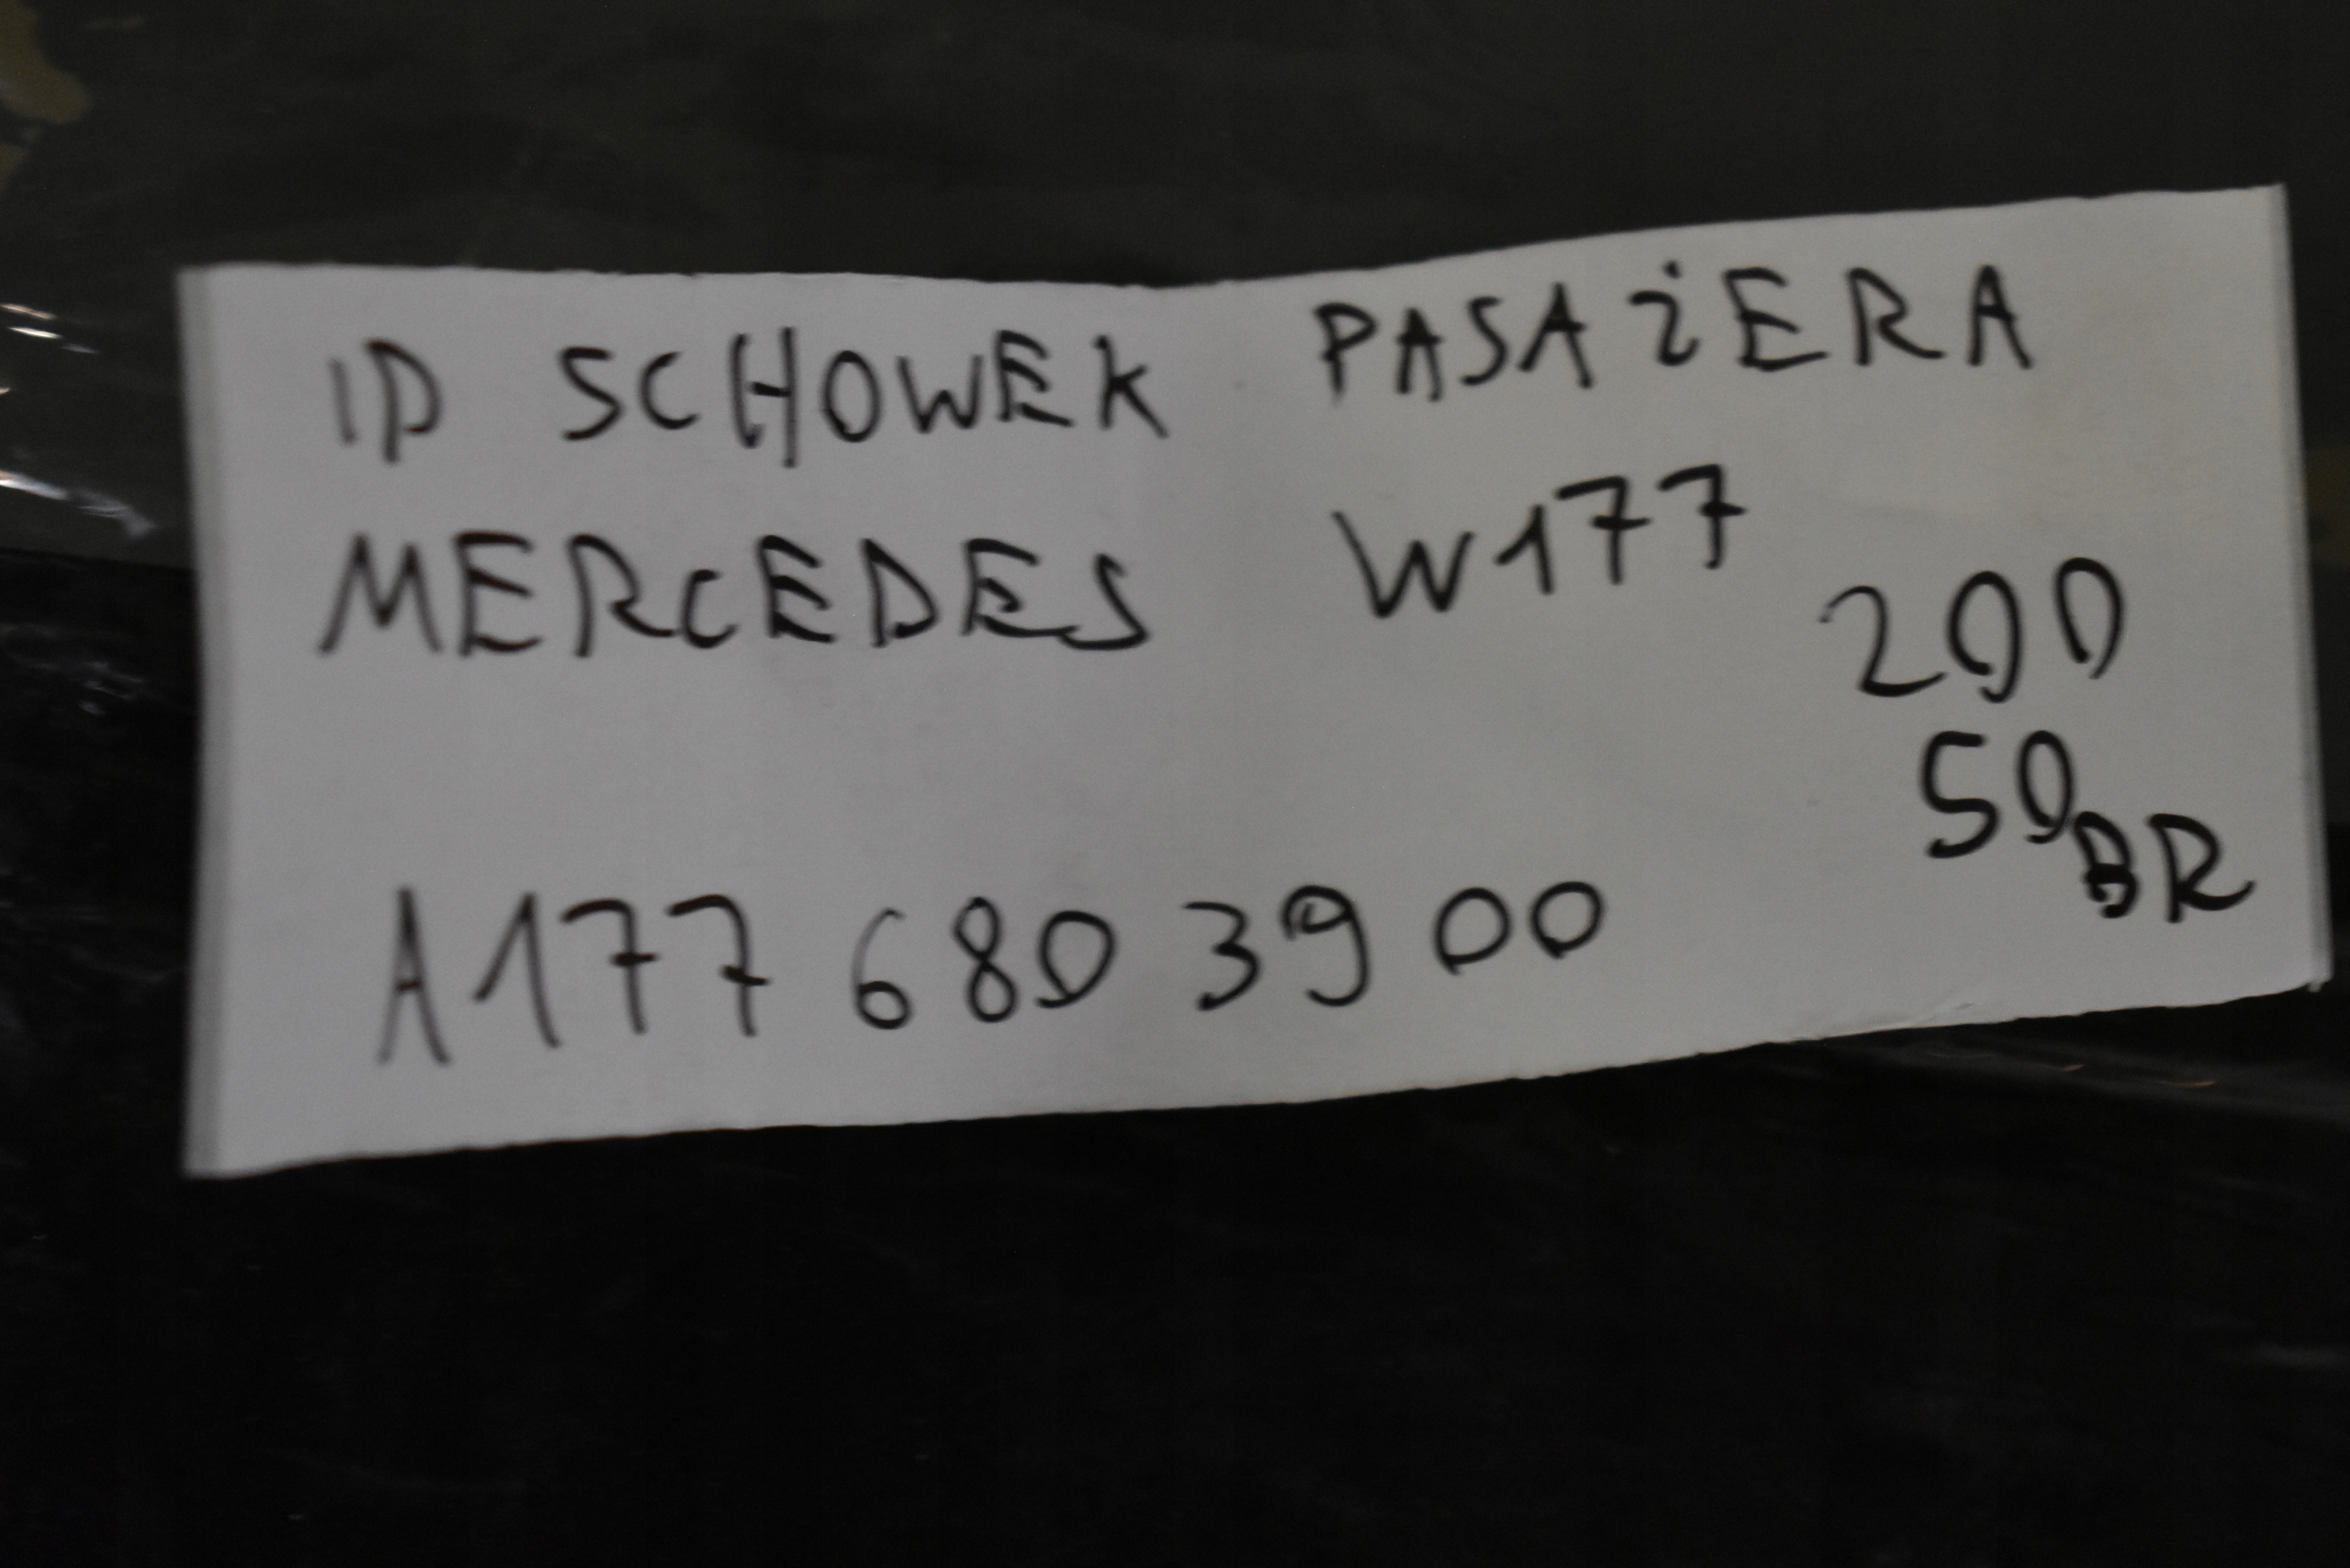 ID SCHOWEK PASAŻERA
MERCEDES W177
200
50
BR
A177 680 39 00